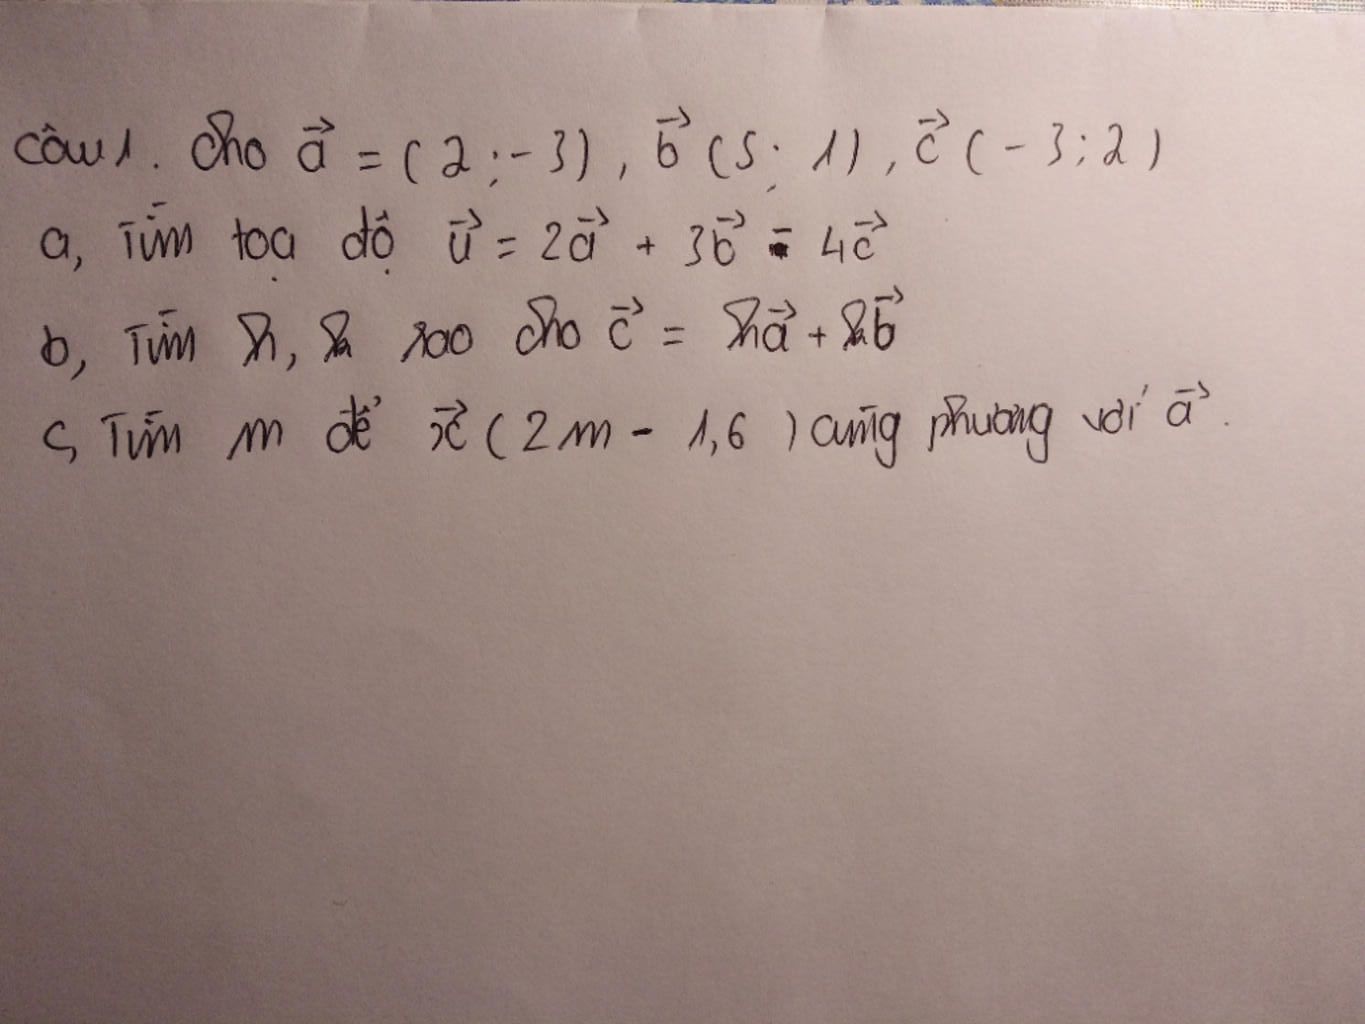 Câu 1. Cho a⃗ = (2 ; -3), b⃗ (5 ; 1), c⃗ (-3 ; 2)
a, Tìm toạ độ u⃗ = 2a⃗ + 3b⃗ - 4c⃗
b, Tìm h, k sao cho c⃗ = ha⃗ + kb⃗
c, Tìm m để x⃗ (2m - 1,6) cùng phương với a⃗.